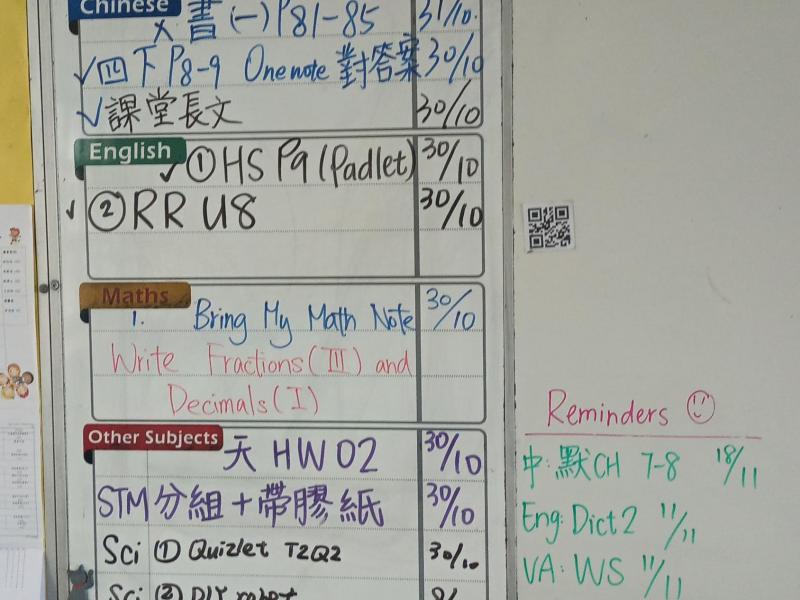 Chinese
X 書(一) P81-85 31/10.
✓四下 P8-9 Onenote 對答案 30/10
✓課堂長文 30/10
English
✓① HS P9 (Padlet) 30/10
✓② RR U8 30/10
Maths
1. Bring My Math Note 30/10
Write Fractions(III) and
Decimals(I)
Other Subjects
天 HW02 30/10
STM分組+帶膠紙 30/10
Sci ① Quizlet T2Q2 30/10
Sci ② DIY robot
Reminders
中: 默CH 7-8 18/11
Eng: Dict 2 11/11
VA: WS 11/11